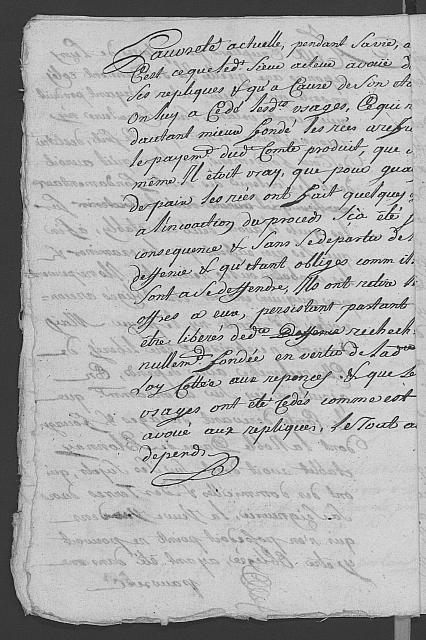 Pauvreté actuelle, pendant sa vie, a
C'est ce que led.t Sieur acteur avoue d
Ses repliques & qu'a Cause de Son eta
on luy a Cedé lesd.ts vsages, Ce qui n
dautant mieux fondé les rées a refu
le payem.t dud.t Comte produit, que
même Il étoit vray, que pour qua
De paix les rées ont fait quelques
a l'incoation du procedé Si a été
consequence & Sans Se departir de
deffense & qu'étant obligés comm il
Sont a Se deffendre, Ils ont retiré l
offres a eux, persistant partant
etre liberés de d.te recherch
nullem.t fondée en vertu de lad.te
Loy Cottée aux reponces, & que Le
vsages ont été Cedés comme est
avoué aux repliques, le Tout a
depend